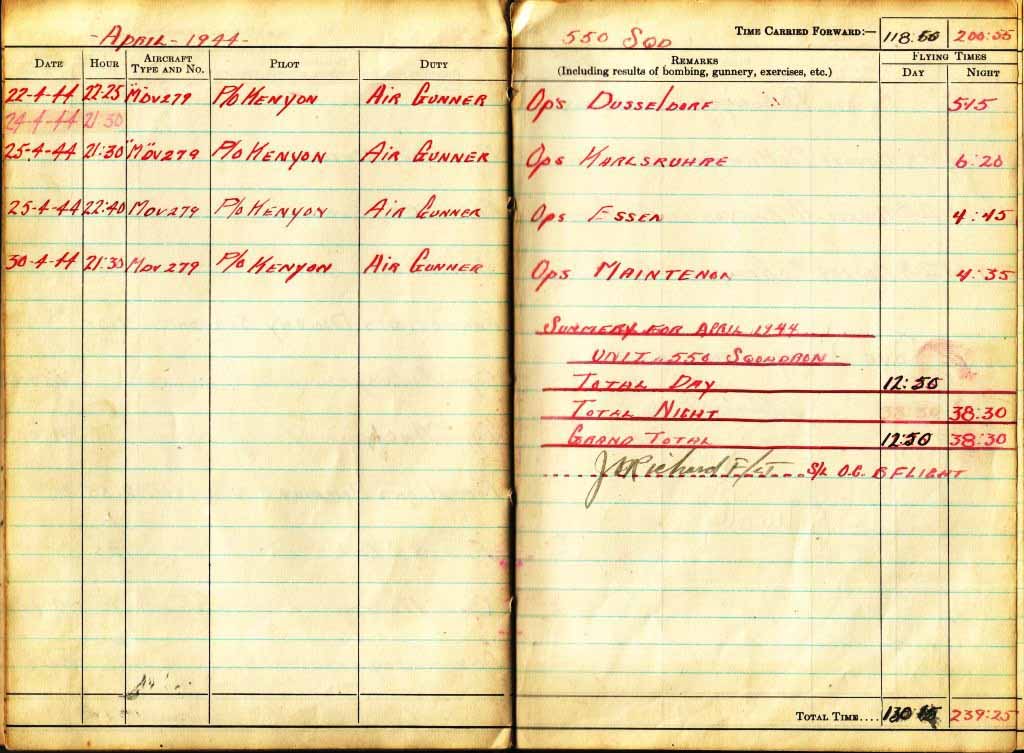 APRIL - 1944 -
DATE HOUR AIRCRAFT TYPE AND NO. PILOT DUTY
22-4-44 22-25 "M" DV279 P/O KENYON AIR GUNNER
24-4-44 21:30
25-4-44 21:30 "M" DV279 P/O KENYON AIR GUNNER
25-4-44 22:40 M DV279 P/O KENYON AIR GUNNER
30-4-44 21:30 M DV279 P/O KENYON AIR GUNNER
550 SQD TIME CARRIED FORWARD:— 118: 200:55
REMARKS
(Including results of bombing, gunnery, exercises, etc.)
FLYING TIMES
DAY NIGHT
Ops DUSSELDORF 5:15
Ops KARLSRUHRE 6:20
Ops ESSEN 4:45
Ops MAINTENON 4:35
SUMMERY FOR APRIL 1944
UNIT 550 SQUADRON
TOTAL DAY 12:50
TOTAL NIGHT 38:30
GRAND TOTAL 12:50 38:30
Richard F/LT S/L O.C. B FLIGHT
TOTAL TIME.... 130 239:25